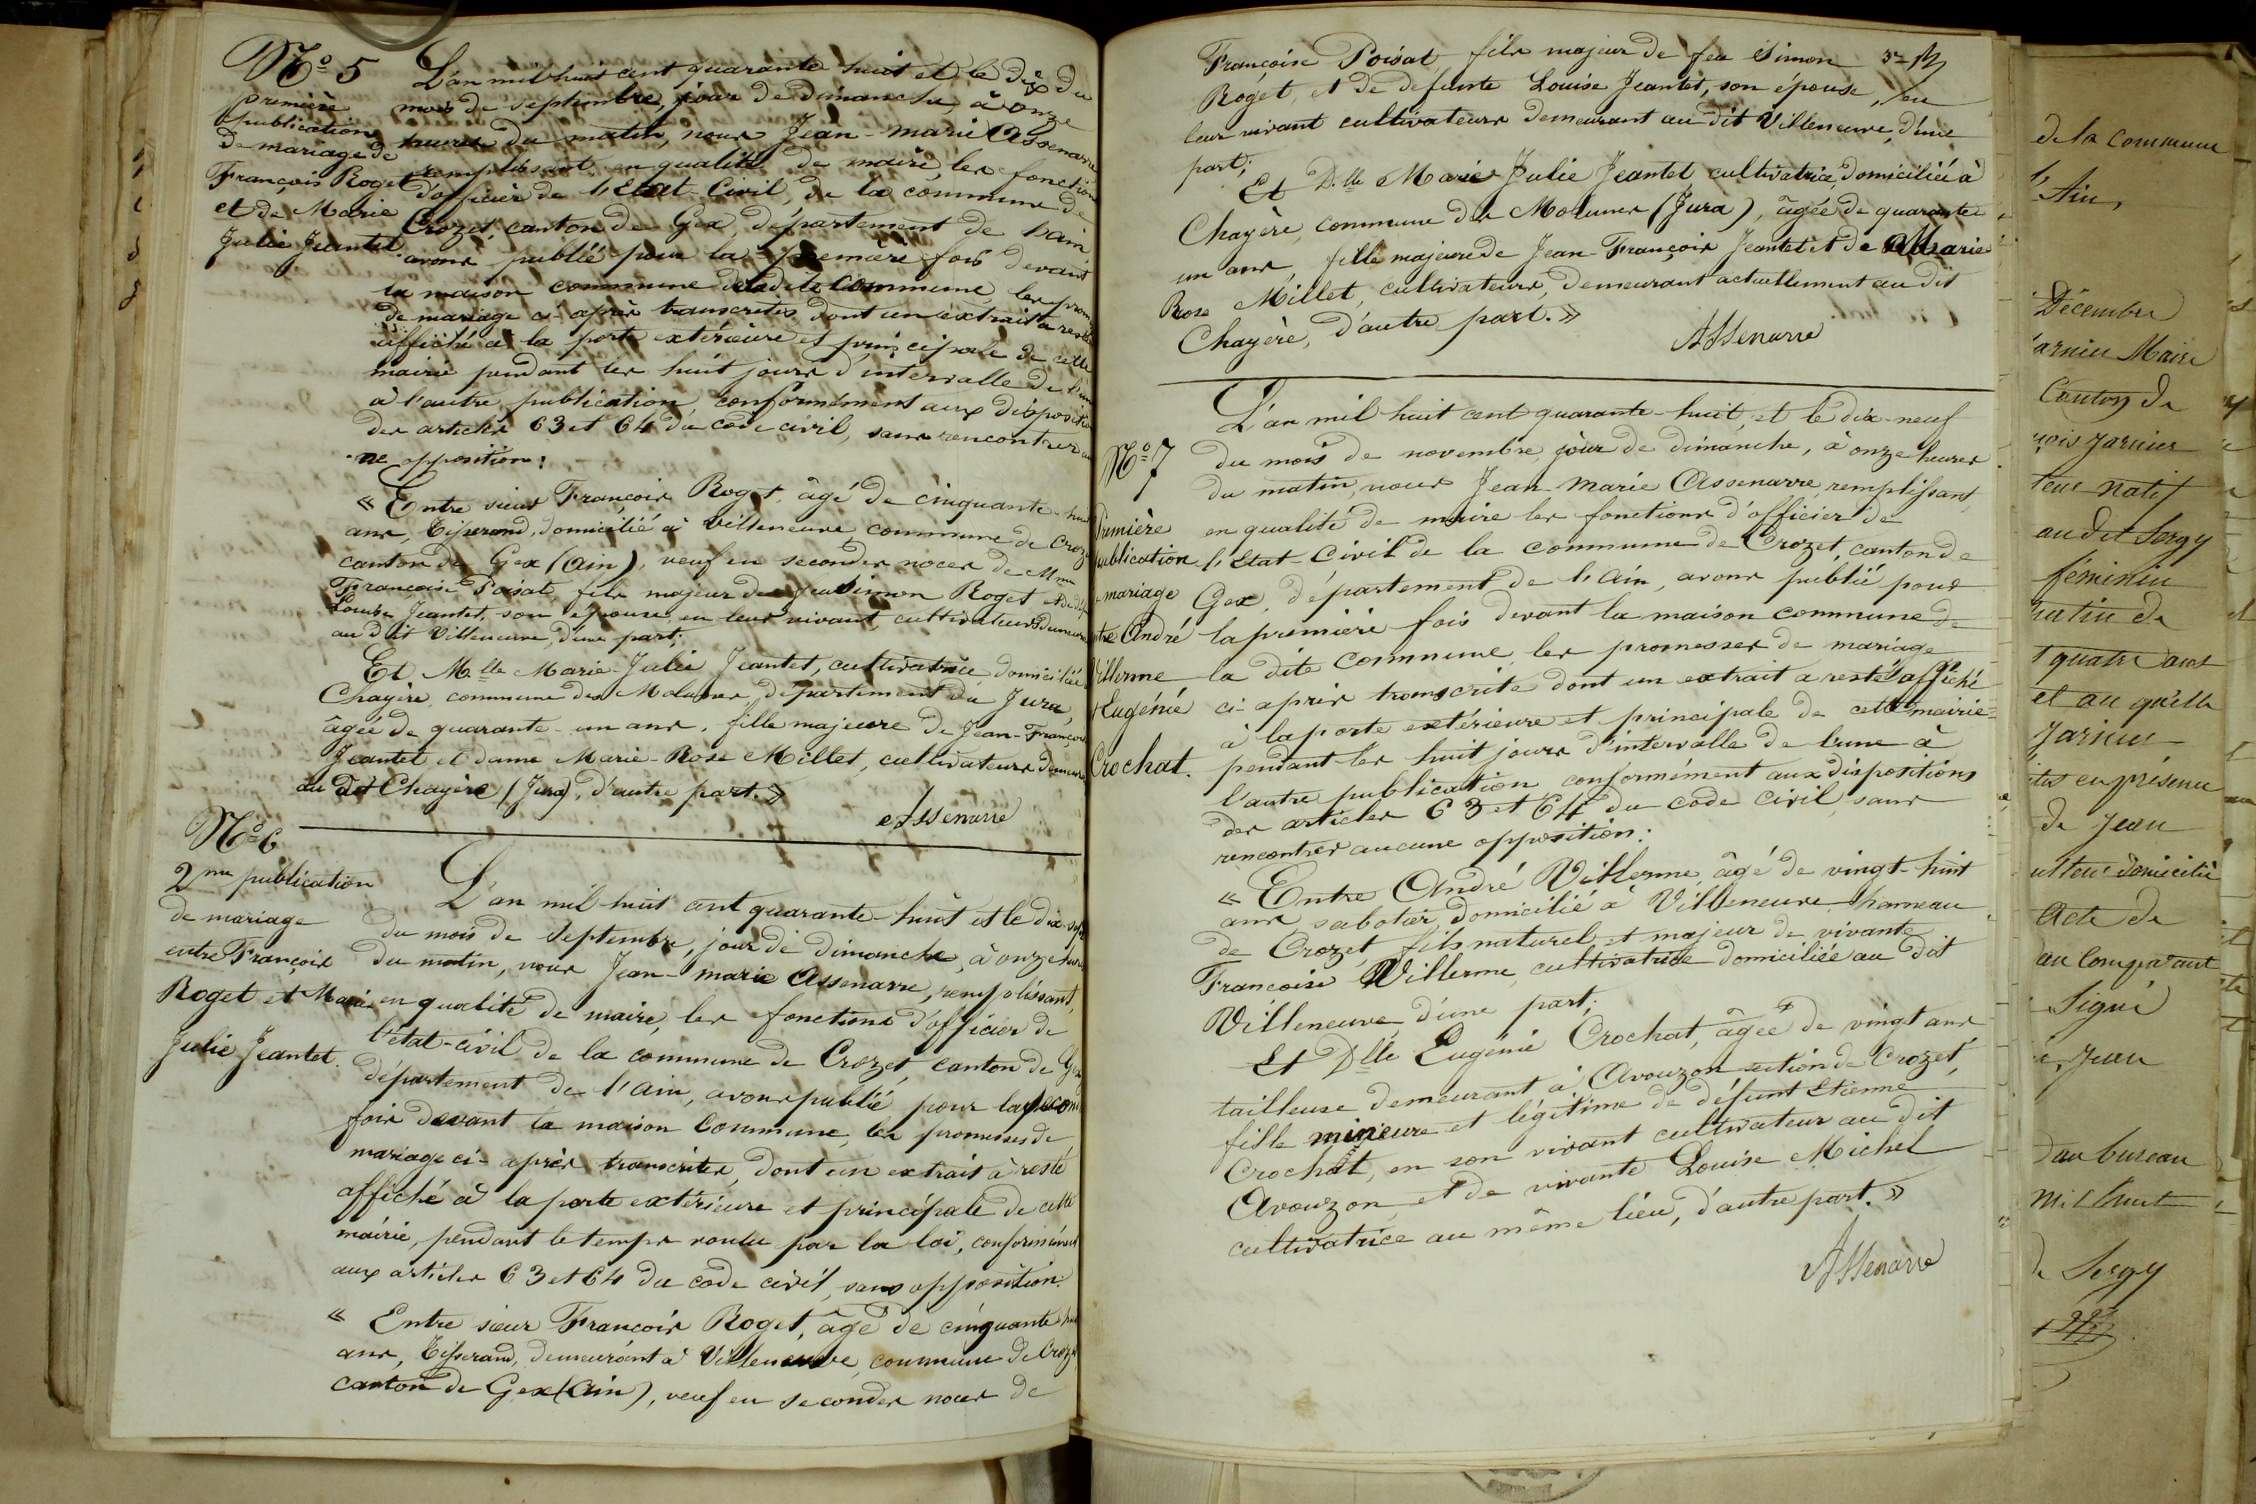 N.º 5
première
publication
de mariage de
François Roget
et de Marie
Julie Jeantet.
L'an mil huit cent quarante huit et le dix du
mois de Septembre, jour de dimanche à onze
heures du matin, nous Jean-Marie Assenarre
remplissant en qualité de maire, les fonctions
d'officier de l'Etat-Civil, de la commune de
Crozet, canton de Gex, département de l'ain,
avons publié pour la première fois devant
la maison commune de ladite Commune, les prom
de mariage ci-après transcrites dont un extrait a resté
affiché à la porte extérieure et principale de cette
mairie pendant les huit jours d'intervalle de l'une
à l'autre publication conformément aux disposit
des articles 63 et 64 du code civil, sans rencontrer au
ne opposition:
« Entre sieur François Roget, âgé de cinquante-hu
ans, tisserand, domicilié à Villeneuve, commune de Croz
canton de Gex (Ain), veuf en secondes noces de Mme
Françoise Poisat fils majeur de feu Simon Roget et de
Louise Jeantet, son épouse, en leur vivant cultivateurs
au dit Villeneuve, d'une part;
Et Mlle Marie-Julie Jeantet, cultivatrice domiciliée
Chayère, commune des Molunes, département du Jura,
âgée de quarante-un ans, fille majeure de Jean-François
Jeantet et dame Marie-Rose Millet, cultivateurs
au dit Chayère (Jura), d'autre part. »
Assenarre
N.º 6
2me publication
de mariage
entre François
Roget et Marie
Julie Jeantet.
L'an mil huit cent quarante-huit et le dix-sept
du mois de Septembre, jour de dimanche, à onze heures
du matin, nous Jean-marie Assenarre, remplissant,
en qualité de maire, les fonctions d'officier de
l'état-civil de la commune de Crozet, canton de Gex
département de l'ain, avons publié pour la second
fois devant la maison Commune, les promesses de
mariage ci-après transcrites, dont un extrait à resté
affiché à la porte extérieure et principale de cette
mairie, pendant le temps voulu par la loi, conformément
aux articles 63 et 64 du code civil, sans opposition:
« Entre sieur François Roget, âgé de cinquante hu
ans, tisserand, demeurant à Villeneuve, commune de Croz
canton de Gex (Ain), veuf en secondes noces de
Françoise Poisat fils majeur de feu Simon
Roget, et de defunte Louise Jeantet, son épouse, en
leur vivant cultivateurs demeurant au dit Villeneuve, d'une
part;
Et D.lle Marie Julie Jeantet cultivatrice, domiciliée à
Chayère, commune des Molunes (Jura), âgée de quarante
un ans, fille majeure de Jean-François Jeantet et de Marie
Rose Millet, cultivateurs, demeurant actuellement au dit
Chayère, d'autre part. »
Assenarre
N.º 7
Première
publication
mariage
entre André
Villerme
Eugénie
Crochat.
L'an mil huit cent quarante-huit, et le dix-neuf
du mois de novembre, jour de dimanche, à onze heures
du matin, nous Jean Marie Assenarre, remplissant,
en qualité de maire les fonctions d'officier de
l'Etat-Civil de la commune de Crozet, canton de
Gex, département de l'ain, avons publié pour
la première fois devant la maison commune de
la dite commune, les promesses de mariage
ci-après transcrite dont un extrait a resté affiché
à la porte extérieure et principale de cette mairie
pendant les huit jours d'intervalle de l'une à
l'autre publication conformément aux dispositions
des articles 63 et 64 du code civil, sans
rencontrer aucune opposition:
« Entre André Villerme, âgé de vingt-huit
ans sabotier, domicilié à Villeneuve hameau
de Crozet, fils naturel et majeur de vivante
Françoise Villerme, cultivatrice domiciliée au dit
Villeneuve d'une part;
Et Dlle Eugénie Crochat, âgée de vingt ans
tailleuse demeurant à Avouzon section de Crozet,
fille mineure et légitime de défunt Etienne
Crochat, en son vivant cultivateur au dit
Avouzon et de vivante Louise Michel
cultivatrice au même lieu, d'autre part. »
Assenarre
de la commune
Ain,
Décembre
Maire
Canton de
Jarnier
natif
au dit Sergy
féminin
matin de
quatre ans
et au qu'elle
Jarnier
en présence
de Jean
domicilié
Acte de
au Comparant
Signé
Jean
d'au bureau
mil huit
de Sergy